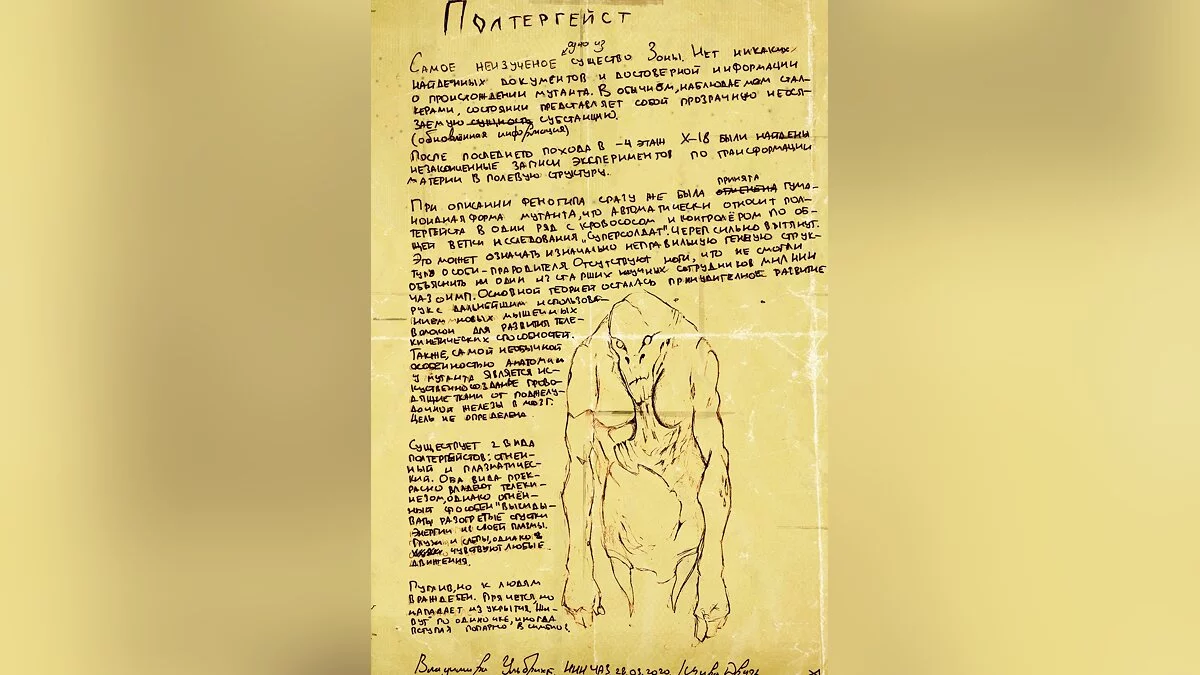 Полтергейст
одно из
Самое неизученое существо Зоны. Нет никаких
найденных документов и достоверной информации
о происхождении мутанта. В обычном, наблюдаемом стал-
керами, состоянии представляет собой прозрачную неося-
заемую сущность субстанцию.
(обновлённая информация)
После последнего похода в -4 этаж X-18 были найдены
незаконченные записи экспериментов по трансформации
материи в полевую структуру.
принята
При описании фенотипа сразу же была отменена гума-
ноидная форма мутанта, что автоматически относит пол-
тергейста в один ряд с кровососом и контролёром по об-
щей ветки исследования „Суперсолдат". Череп сильно вытянут.
Это может означать изначально неправильную генную струк-
туру особи-прародителя. Отсутствуют ноги, что не смогли
объяснить ни один из старших научных сотрудников НИИ
ЧАЗ. Основной теорией осталась принудительное развитие
рук с дальнейшим использова-
нием новых мышечных
волокон для развития теле-
кинетических способностей.
Также, самой необычной
особенностью анатомии
у мутанта является ис-
куственно созданые прово-
дящие ткани от поджелу-
дочной железы в мозг.
Цель не определена.
Существует 2 вида
полтергейстов: огнен-
ный и плазматичес-
кий. Оба вида прек-
расно владеют телеки-
незом, однако огнен-
ный способен "выкиды-
вать" разогретые сгустки
энергии из своей плазмы.
Глухи и слепы, однако
чувствуют любые
движения.
Пуглив, но к людям
враждебен. Прячется, но
нападает из укрытия. Жи-
вут по одиночке, иногда
попарно в симбиоз.
НИИ ЧАЗ 28.03.2020